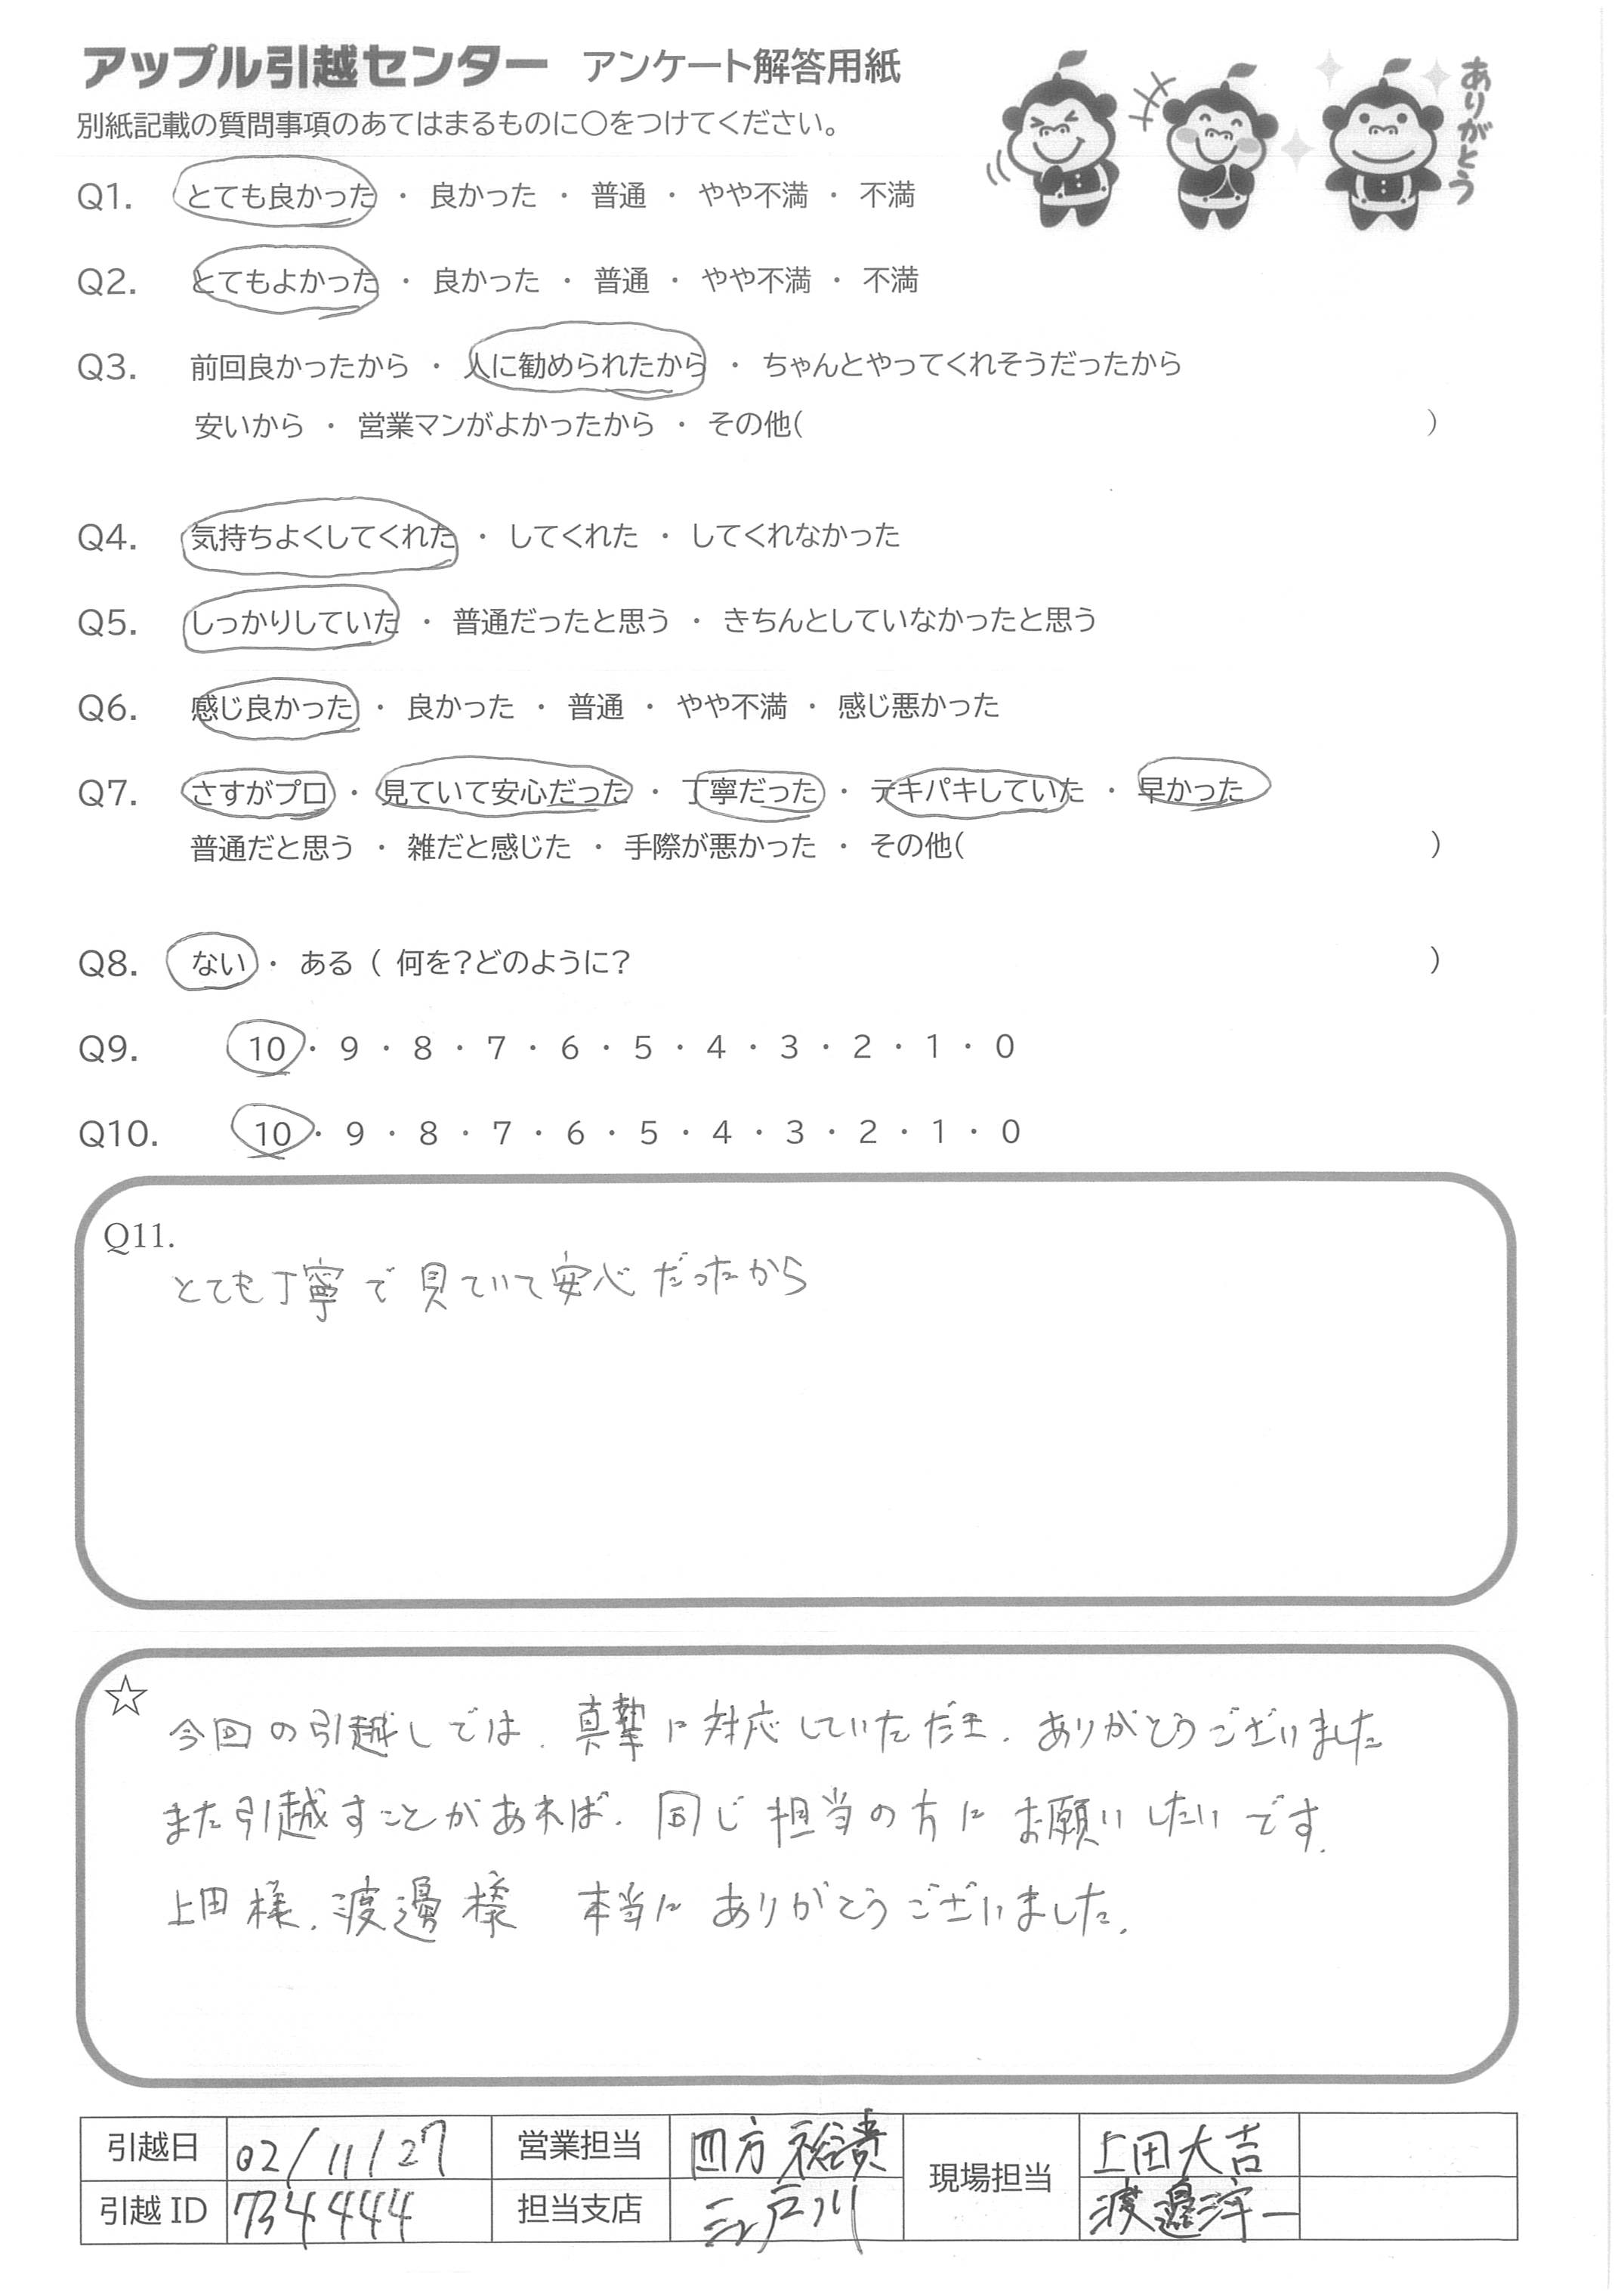 アップル引越センター アンケート解答用紙
ありがとう
別紙記載の質問事項のあてはまるものに〇をつけてください。
Q1. とても良かった ・ 良かった ・ 普通 ・ やや不満 ・ 不満
Q2. とてもよかった ・ 良かった ・ 普通 ・ やや不満 ・ 不満
Q3. 前回良かったから ・ 人に勧められたから ・ ちゃんとやってくれそうだったから
安いから ・ 営業マンがよかったから ・ その他( )
Q4. 気持ちよくしてくれた ・ してくれた ・ してくれなかった
Q5. しっかりしていた ・ 普通だったと思う ・ きちんとしていなかったと思う
Q6. 感じ良かった ・ 良かった ・ 普通 ・ やや不満 ・ 感じ悪かった
Q7. さすがプロ ・ 見ていて安心だった ・ 丁寧だった ・ テキパキしていた ・ 早かった
普通だと思う ・ 雑だと感じた ・ 手際が悪かった ・ その他( )
Q8. ない ・ ある ( 何を?どのように? )
Q9. 10 ・ 9 ・ 8 ・ 7 ・ 6 ・ 5 ・ 4 ・ 3 ・ 2 ・ 1 ・ 0
Q10. 10 ・ 9 ・ 8 ・ 7 ・ 6 ・ 5 ・ 4 ・ 3 ・ 2 ・ 1 ・ 0
Q11.
とても丁寧で見ていて安心だったから
☆
今回の引越しでは、真摯に対応していただき、ありがとうございました
また引越すことがあれば、同じ担当の方にお願いしたいです。
上田様、渡邊様 本当にありがとうございました。
引越日 02/11/27 営業担当 四方裕貴 現場担当 上田大吉
引越ID 734444 担当支店 江戸川 渡邊淳一